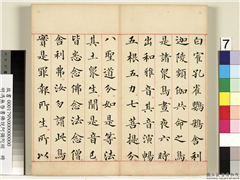 白鶴孔雀鸚鵡舍利
迦陵頻伽共命之鳥
是諸衆鳥晝夜六時
出和雅音其音演暢
五根五力七菩提分
八聖道分如是等法
其土衆生聞是音已
皆悉念佛念法念僧
舍利弗汝勿謂此鳥
實是罪報所生所以
7